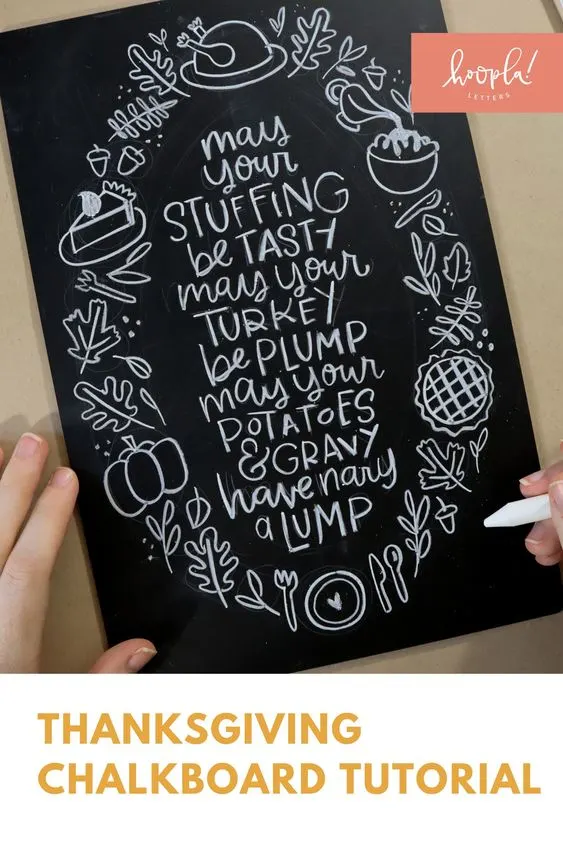 hoopla!
LETTERS
may
your
STUFFING
be TASTY
may your
TURKEY
be PLUMP
may your
POTATOES
& GRAVY
have nary
a LUMP
THANKSGIVING
CHALKBOARD TUTORIAL